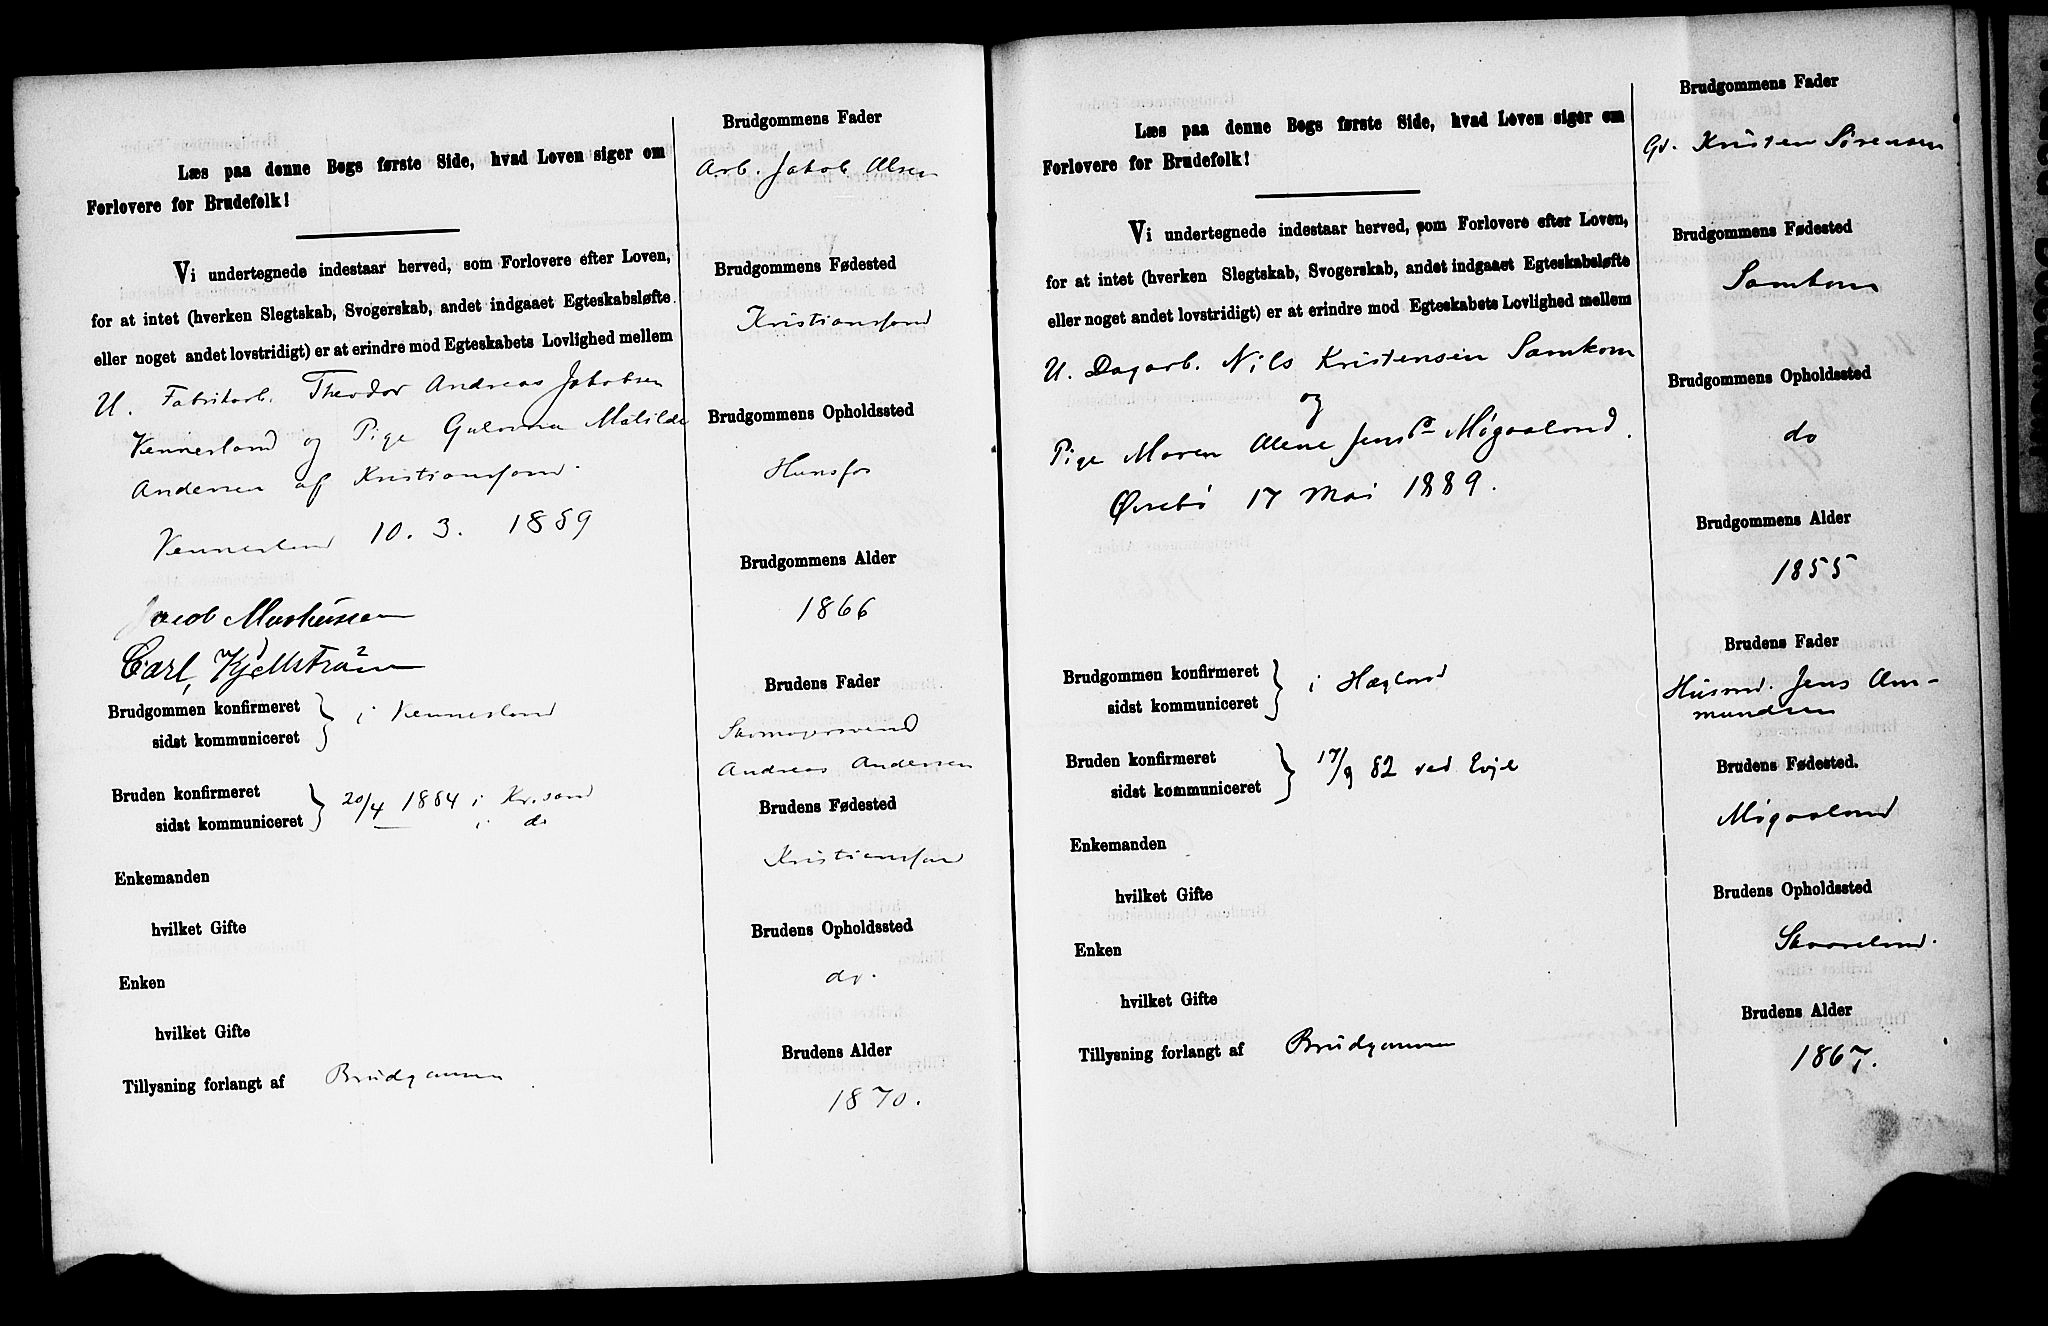 Læs paa denne Bogs første Side, hvad Loven siger om
Forlovere for Brudefolk!
Vi undertegnede indestaar herved, som Forlovere efter Loven,
for at intet (hverken Slegtskab, Svogerskab, andet indgaaet Egteskabsløfte
eller noget andet lovstridigt) er at erindre mod Egteskabets Lovlighed mellem
U. Fabrikarb. Theodor Andreas Jakobsen
Vennesland og Pige Gulovina Matilde
Andersen af Kristianssand.
Vennesland 10. 3. 1889
Jacob Markussen
Carl Kjellström
Brudgommen konfirmeret
sidst kommuniceret } i Vennesland
Bruden konfirmeret
sidst kommuniceret } 20/4 1884 i Kr.sand
i do
Enkemanden
hvilket Gifte
Enken
hvilket Gifte
Tillysning forlangt af Brudgommen
Brudgommens Fader
Arb. Jakob Olsen
Brudgommens Fødested
Kristianssand
Brudgommens Opholdssted
Hunsfos
Brudgommens Alder
1866
Brudens Fader
Skomagersvend
Andreas Andersen
Brudens Fødested
Kristianssand
Brudens Opholdssted
do.
Brudens Alder
1870.
Læs paa denne Bogs første Side, hvad Loven siger om
Forlovere for Brudefolk!
Vi undertegnede indestaar herved, som Forlovere efter Loven,
for at intet (hverken Slegtskab, Svogerskab, andet indgaaet Egteskabsløfte
eller noget andet lovstridigt) er at erindre mod Egteskabets Lovlighed mellem
U. Dagarb. Nils Kristensen Samkom
og
Pige Maren Alene Jens D. Møgaaland.
Øvrebø 17 Mai 1889.
Brudgommen konfirmeret
sidst kommuniceret } i Hægland
Bruden konfirmeret
sidst kommuniceret } 17/9 82 ved Evje
Enkemanden
hvilket Gifte
Enken
hvilket Gifte
Tillysning forlangt af Brudgommen
Brudgommens Fader
Gd. Kristen Sørensen
Brudgommens Fødested
Samkom
Brudgommens Opholdssted
do
Brudgommens Alder
1855
Brudens Fader
Husmd. Jens Am-
mundsen
Brudens Fødested.
Møgaaland
Brudens Opholdssted
Skaareland.
Brudens Alder
1867.